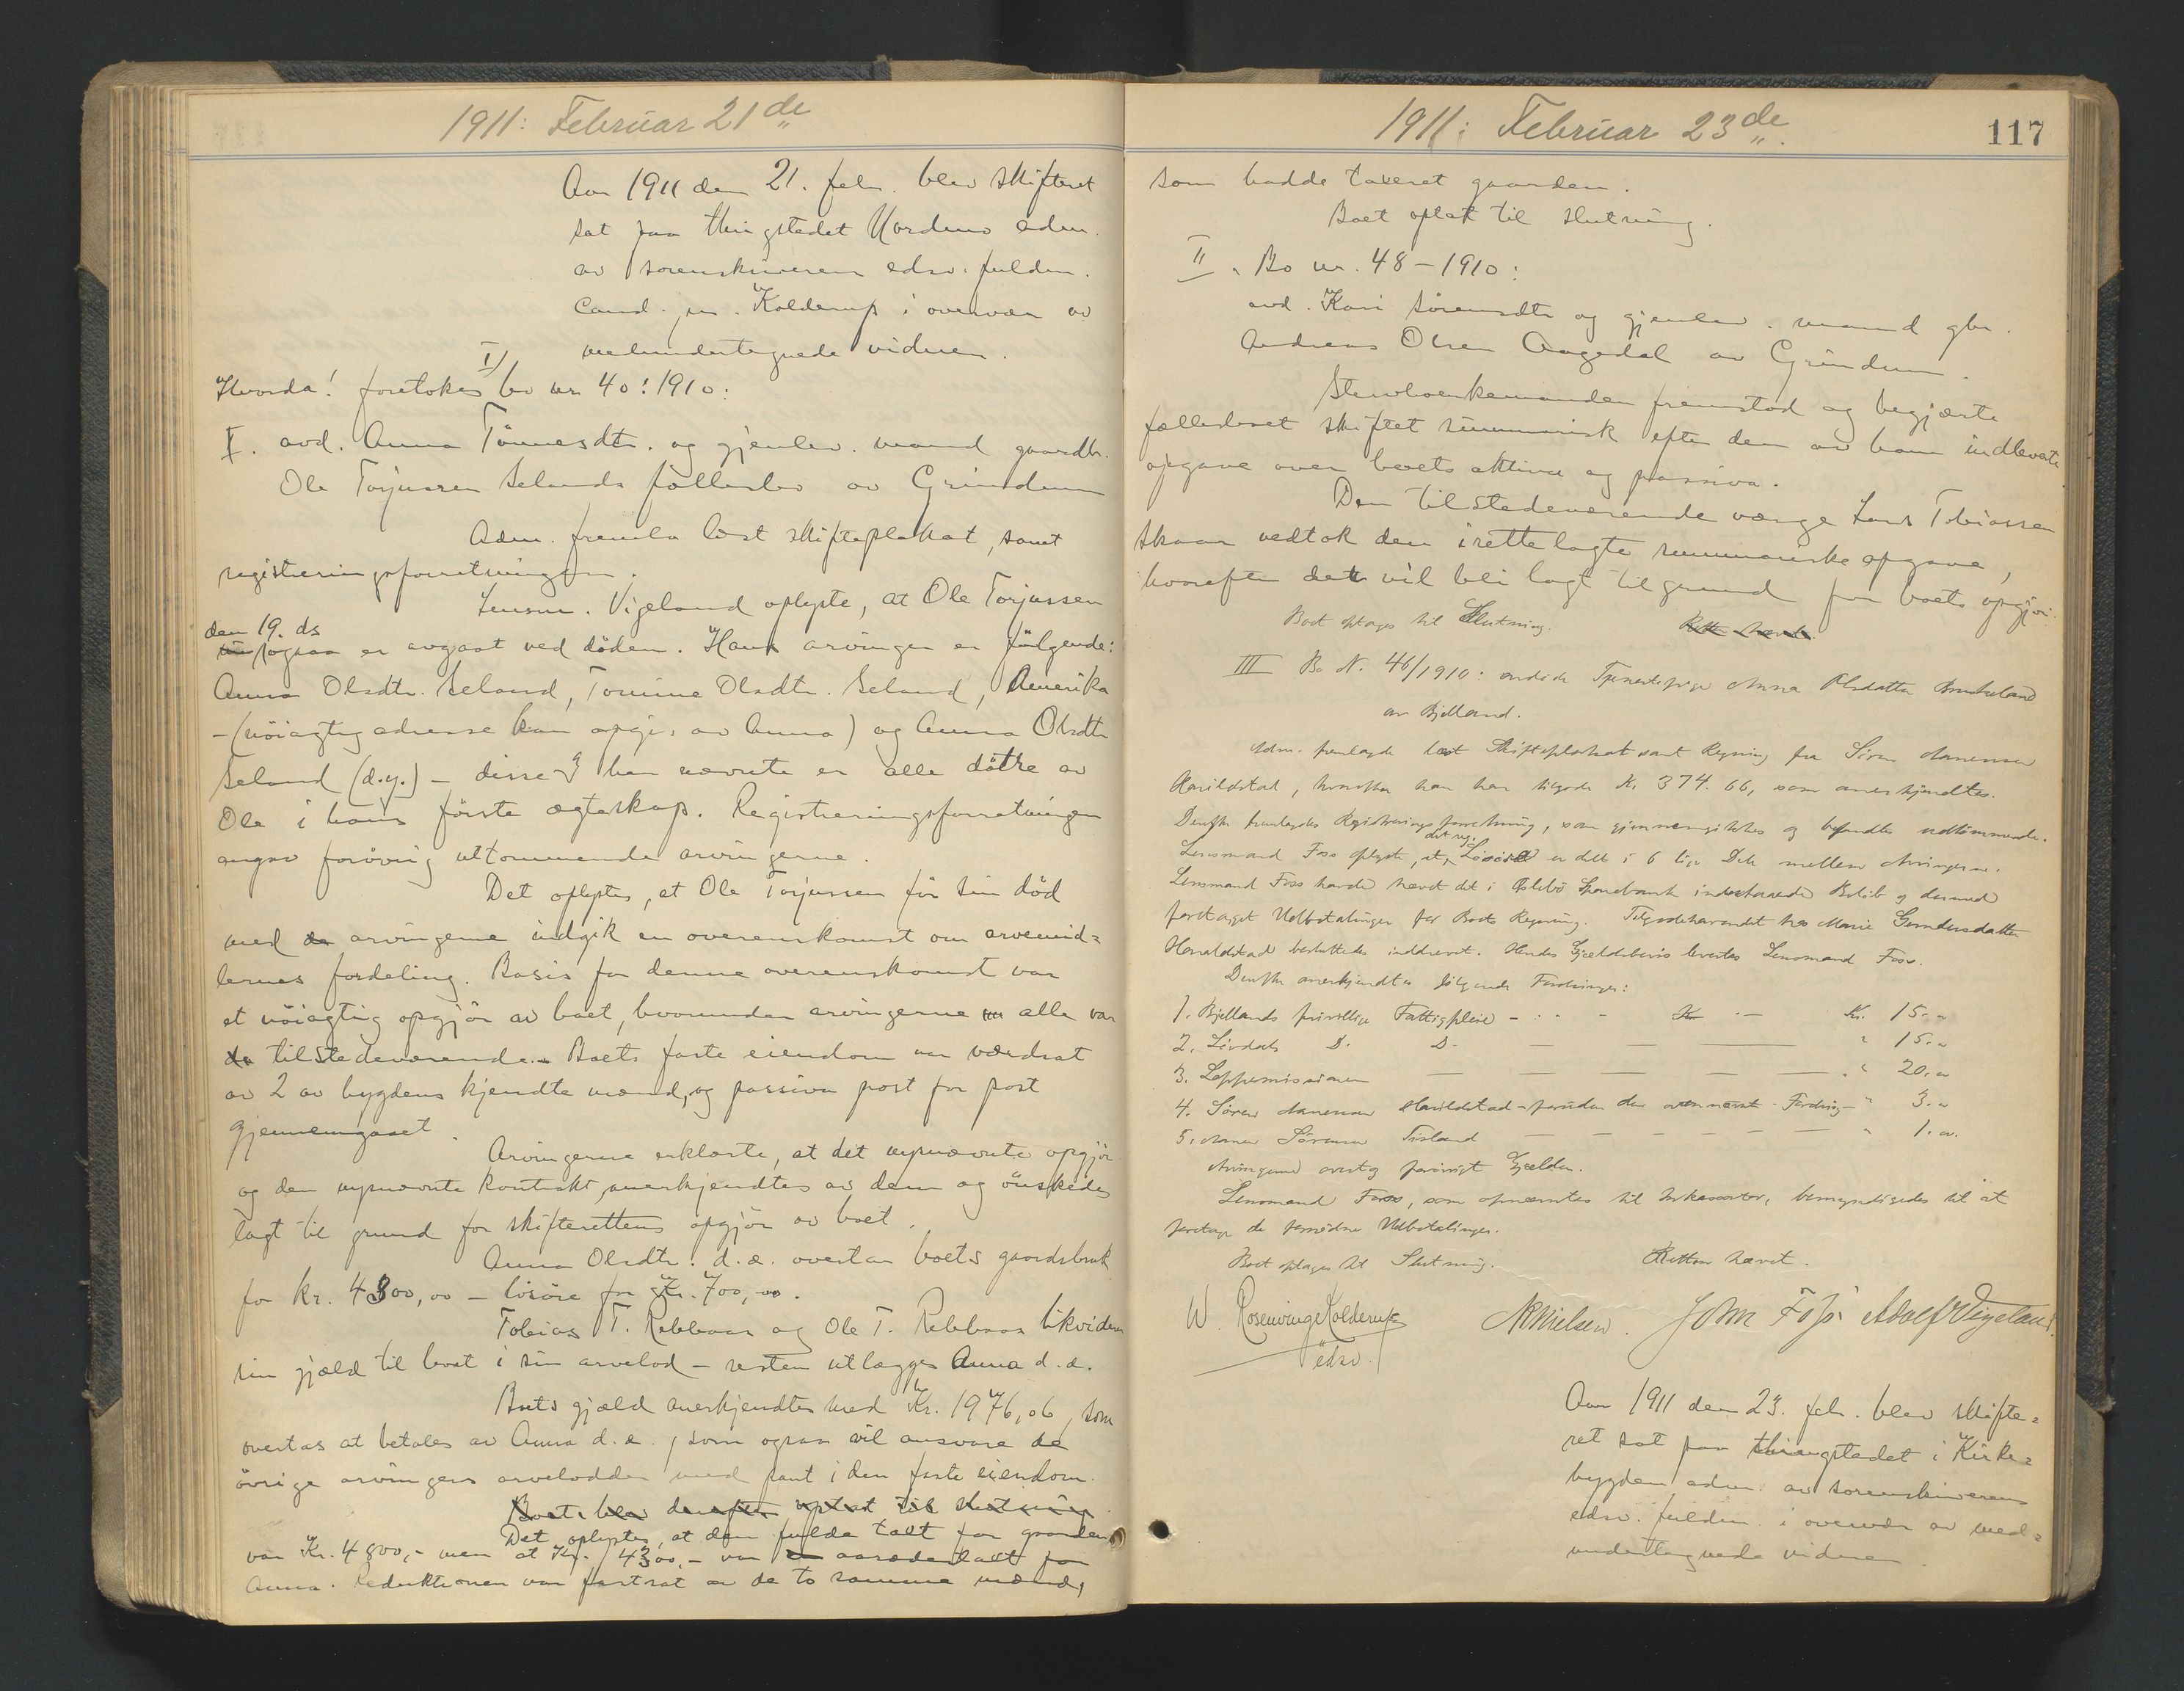 1911: Februar 21de
Aar 1911 den 21. febr. blev skifteret
sat paa thingstedet Nordens adm.
av sorenskriveren edsv. fuldm.
Cand. jur. Kolderup i overvær av
medundertegnede vidner.
I)
Hvorda! foretokes bo nr. 40: 1910:
I. avd. Anna Tönnesdtr. og gjenlev. mand gaardbr.
Ole Torjussen Selands fællesbo av Grindum
Adm. fremla læst skifteplakat, samt
registreringsforretningen.
Lensm. Vigeland oplyste, at Ole Torjussen
den 19. ds
ogsaa er avgaat ved döden. Hans arvinger er fölgende:
Anna Olsdtr. Seland, Tomine Olsdtr. Seland, Amerika
- (nöiagtig adresse kan opgis av Anna) og Anna Olsdtr.
Seland (d.y.) - disse 3 her nævnte er alle döttre av
Ole i hans förste ægteskap. Registreringsforretningen
angav forövrig uttömmende arvingerne.
Det oplystes, at Ole Torjussen för sin död
med de arvingerne indgik en overenskomst om arvemid=
lernes fordeling. Basis for denne overenskomst var
et nöiagtig opgjör av boet, hvorunder arvingerne alle var
da tilstedeværende. Boets faste eiendom var værdsat
av 2 av bygdens kjendte mænd, og passiva post for post
gjennemgaaet.
Arvingerne erklærte, at det nysnævnte opgjör
og den nysnævnte kontrakt anerkjendtes av dem og önskedes
lagt til grund for skifterettens opgjör av boet.
Anna Olsdtr. d. æ. overtar boets gaardsbruk
for kr. 4300,00 - lösöre for Kr. 700,00.
Tobias T. Rebbaas og Ole T. Rebbaas likviderer
sin gjæld til boet i sin arvelod - resten utlægges Anna d. æ.
Boets gjæld anerkjendtes med Kr. 1976,06, som
overtas at betales av Anna d. æ., som ogsaa vil ansvare de
övrige arvingers arvelodder med pant i den faste eiendom.
Boet blev derefter optat til slutning
Det oplystes, at den fulde takt for gaarden
var Kr. 4800,- men at Kr. 4300,- var en aasædestakt for
Anna. Reduktionen var fastsat av de to samme mænd,
1911: Februar 23de
117
som hadde taxeret gaarden.
Boet optat til slutning.
II. Bo nr. 48 - 1910:
avd. Kari Sörensdtr og gjenlev. mand gbr.
Andreas Olsen Aagedal av Grindum.
Stervboenkemanden fremstod og begjærte
fællesboet skiftet summarisk efter den av ham indleverte
opgave over boets aktiva og passiva.
Den tilstedeværende værge Lars Tobiassen
Skaar vedtok den irettelagte summariske opgave,
hvorefter dette vil bli lagt til grund for boets opgjör.
Boet optages til Slutning. Retten hævet.
III Bo N. 46/1910: avdöde Tjenestepige Anna Olsdatter
av Bjelland.
Adm. fremlagde læst Skifteplakat samt Regning fra Sören Aanensen
Harildstad, hvorefter han har tilgode Kr. 374.66, som anerkjendtes.
Derefter fremlagdes Registreringsforretning, som gjennemgikkes og befandtes udtömmende.
det reg.
Lensmand Foss oplyste, at Lösöre er delt i 6 lige Dele mellem Arvingerne.
Lensmand Foss havde hævet det i Öslebö Sparebank indestaaende Belöb og dermed
foretaget Udbetalinger for Boets Regning. Tilgodehavendet hos Marie Gundersdatter
Haraldstad besluttedes inddrevet. Hendes Gjældsbevis leveres Lensmand Foss.
Derefter anerkjendtes fölgende Fordringer:
1. Bjellands frivillige Fattigpleie - - - Kr. - Kr. 15.-
2. Sirdals D. D. - - - " 15.-
3. Lappemissionen - - - - - " 20.-
4. Sören Aanensen Harildstad - foruden den ovennævnt Fordring - " 3.-
5. Aanen Sörensen Tisland - - - - - - " 1.-
Arvingerne overtog forövrigt Gjælden.
Lensmand Foss, som opnævntes til Inkassator, bemyndigedes til at
foretage de fornödne Udbetalinger.
Boet optages til Slutning. Retten hævet.
W. Rosenvinge Kolderup
edsv.
NNielsen. John Foss Adolf Vigeland.
Aar 1911 den 23. febr. blev skifte=
ret sat paa thingstedet i Kirke=
bygden adm. av sorenskriverens
edsv. fuldm. i overvær av med=
undertegnede vidner.